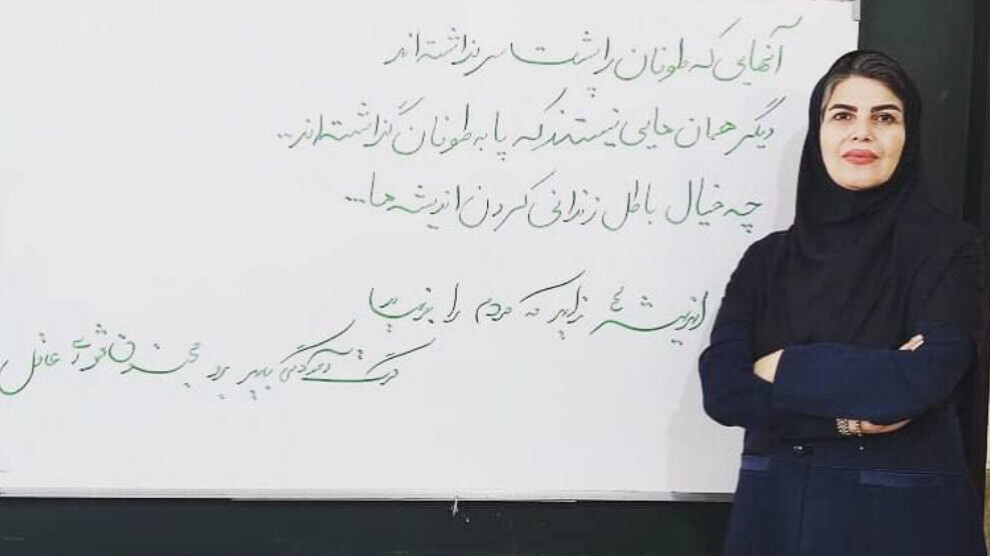 آنهایی که طوفان را پشت سر گذاشته‌اند
دیگر همان‌هایی نیستند که پا به طوفان گذاشته‌اند...
چه خیال باطل زندانی کردن اندیشه‌ها...
اندیشه ز که مردم را
گرت باید برو مجنون شو ای عاقل